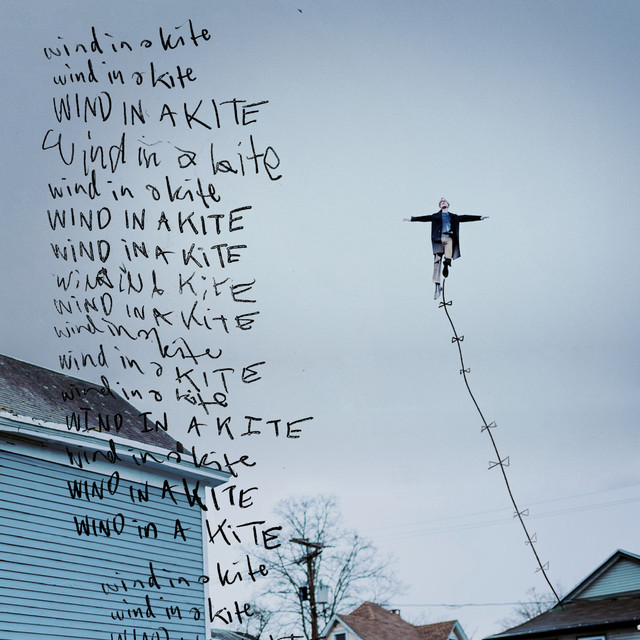 wind in a kite
wind in a kite
WIND IN A KITE
Wind in a kite
wind in a kite
WIND IN A KITE
WIND IN A KITE
WIND IN A KITE
WIND IN A KITE
wind in a kite
wind in a KITE
wind in a kite
WIND IN A KITE
wind in a kite
WIND IN A KITE
WIND in A KITE
wind in a kite
wind in a kite
WIND IN A KITE